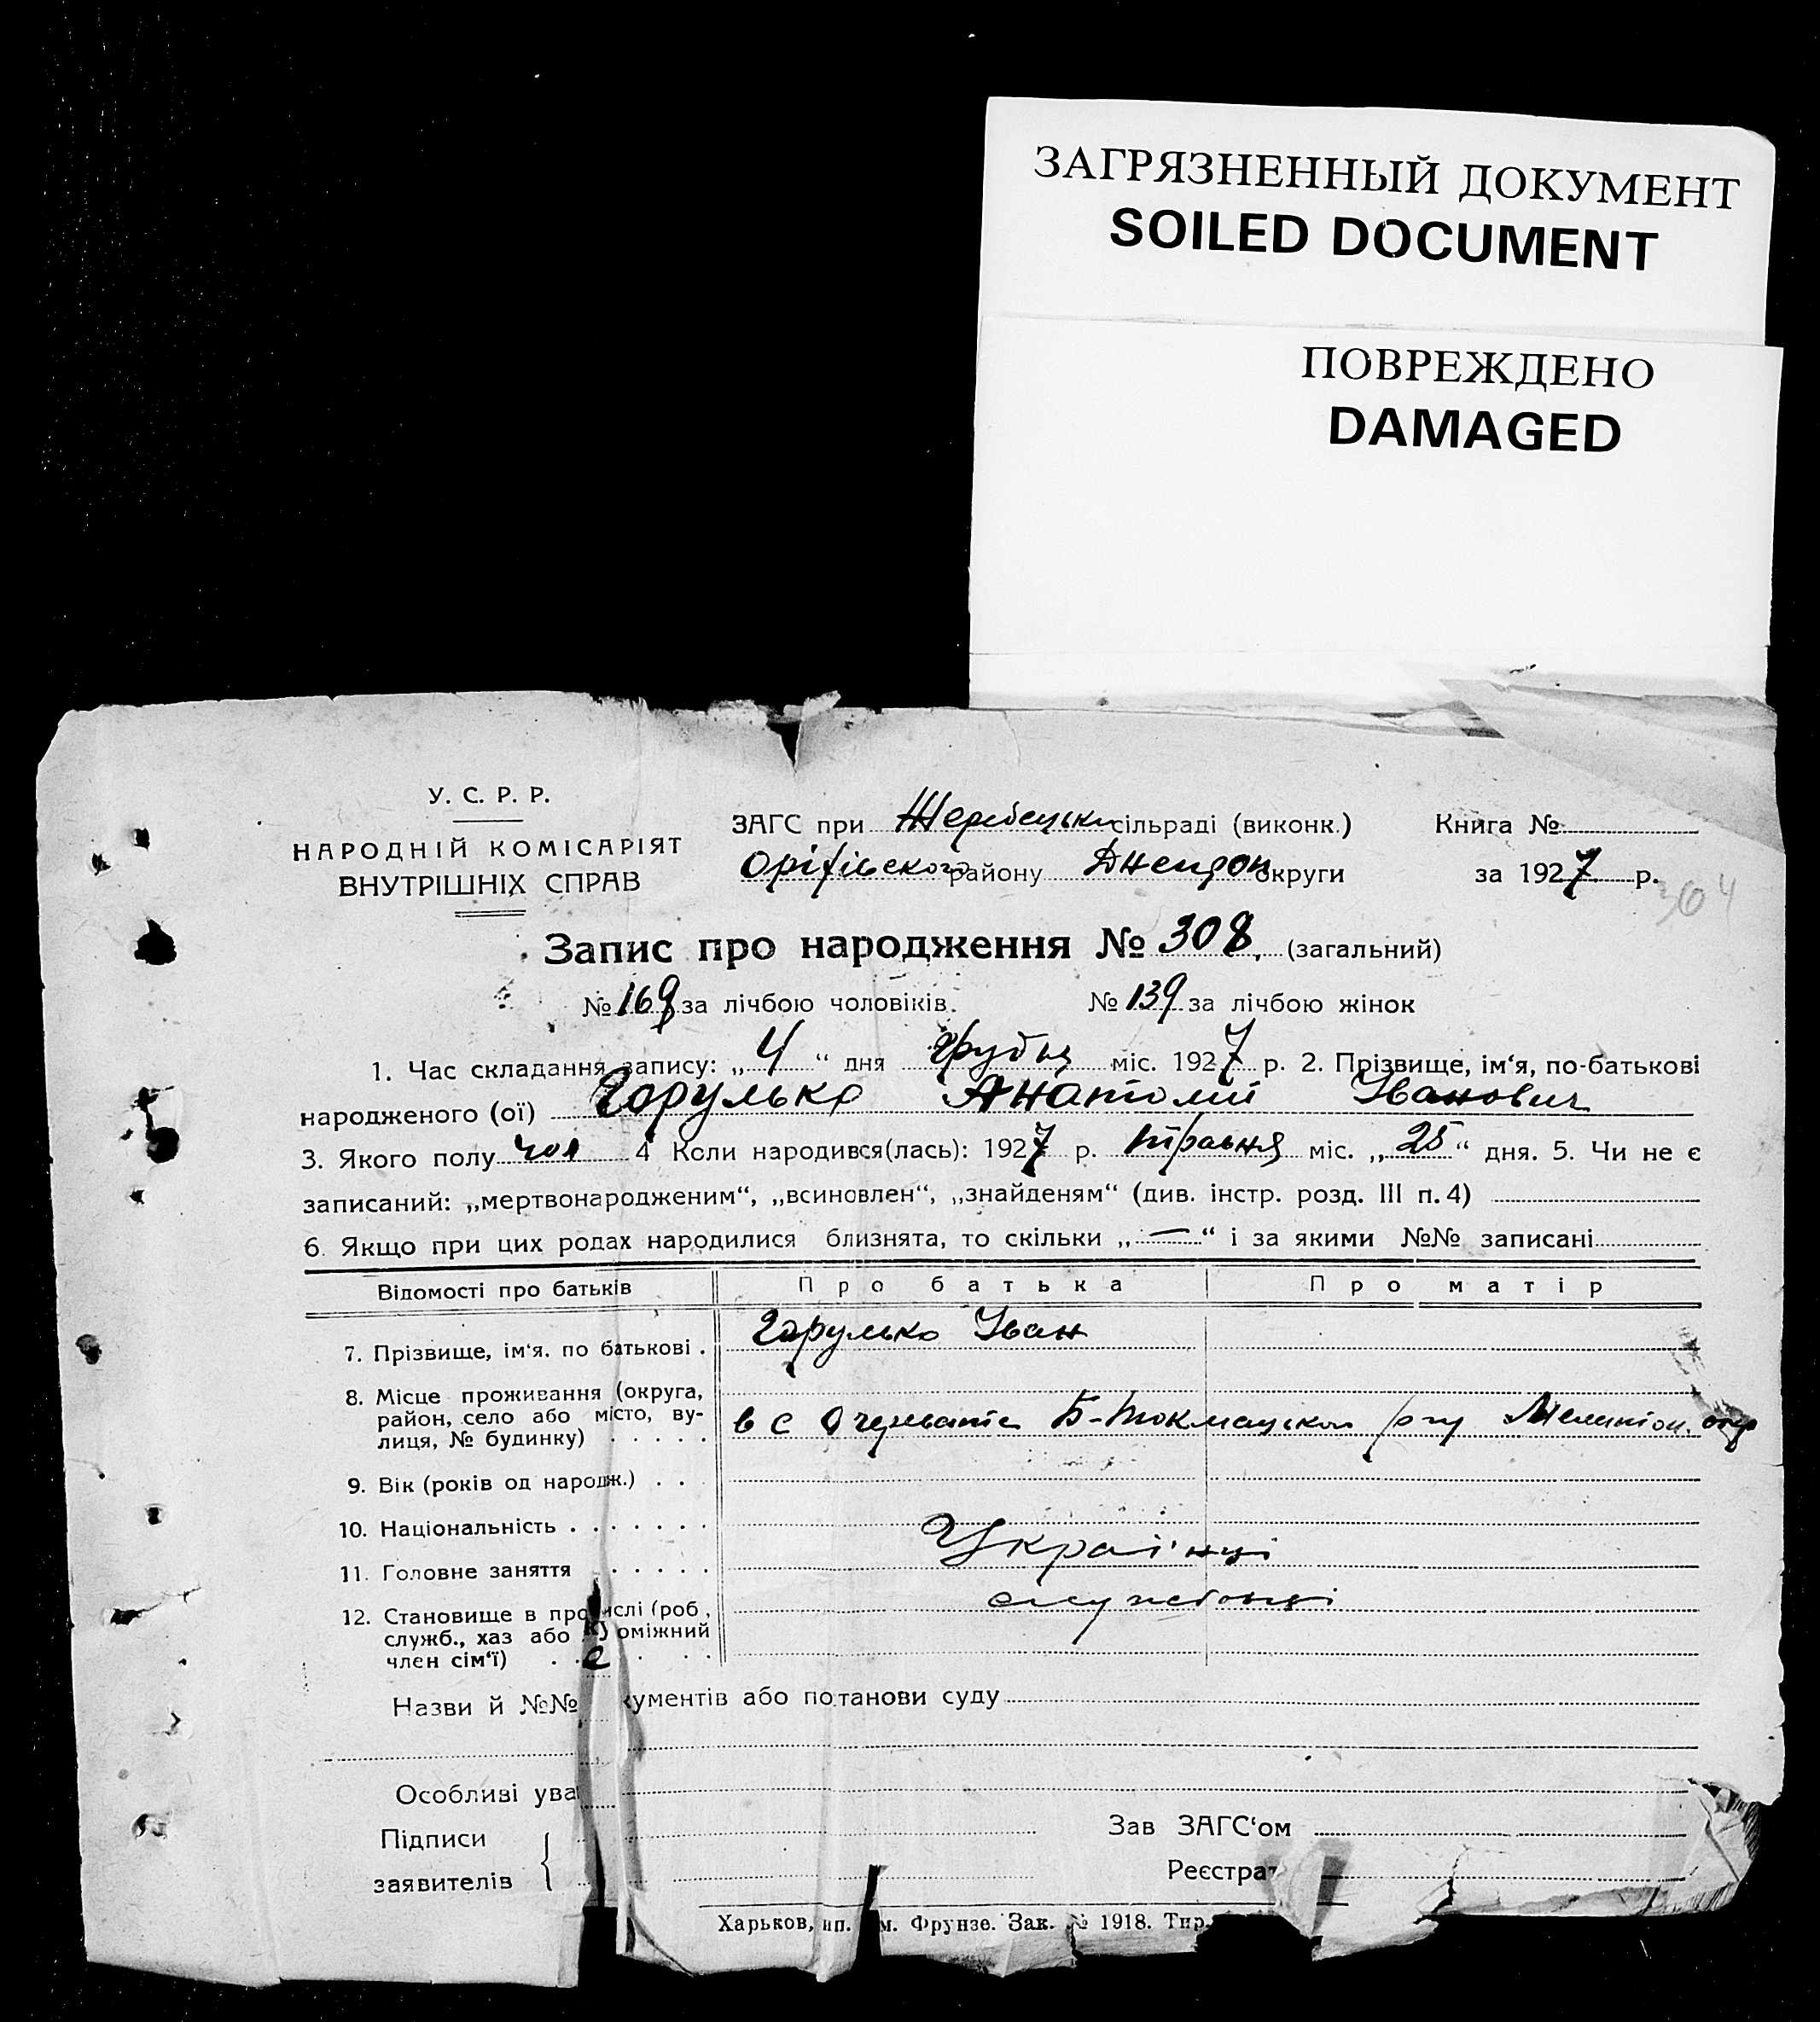 ЗАГРЯЗНЕННЫЙ ДОКУМЕНТ
SOILED DOCUMENT
ПОВРЕЖДЕНО
DAMAGED
У. С. Р. Р.
НАРОДНІЙ КОМІСАРІЯТ
ВНУТРІШНІХ СПРАВ
ЗАГС при Жеребецьки сільраді (виконк.) Книга №
Оріхівского району округи за 1927 р.
304
Запис про народження № 308 (загальний)
№ 169 за лічбою чоловіків. № 139 за лічбою жінок
1. Час складання запису: „ 4 “ дня грудня міс. 1927 р. 2. Прізвище, ім‘я, по-батькові
народженого (ої) Горулько Анатолій Іванович
3. Якого полу чол 4 Коли народився(лась): 1927 р. травня міс. „ 25 “ дня. 5. Чи не є
записаний: „мертвонародженим“, „всиновлен“, „знайденям“ (див. інстр. розд. III п. 4)
6. Якщо при цих родах народилися близнята, то скільки „ — “ і за якими №№ записані
Відомості про батьків Про батька Про матір
7. Прізвище, ім‘я. по батькові . Горулько Іван
8. Місце проживання (округа,
район, село або місто, ву-
лиця, № будинку) . . . . . в с Б-Токмацьком р-ну Мелитоп. окр
9. Вік (років од народж.) . .
10. Національність . . . . . . .
Українці
11. Головне заняття . . . . . .
службовці
12. Становище в про ислі (роб.,
служб., хаз або оміжний
член сім‘ї) . . . . .
Назви й №№ кументів або потанови суду
Особливі ува
Підписи
заявителів
Зав ЗАГС‘ом
Реєстрат
Харьков, ип. м. Фрунзе. Зак. № 1918. Тир.